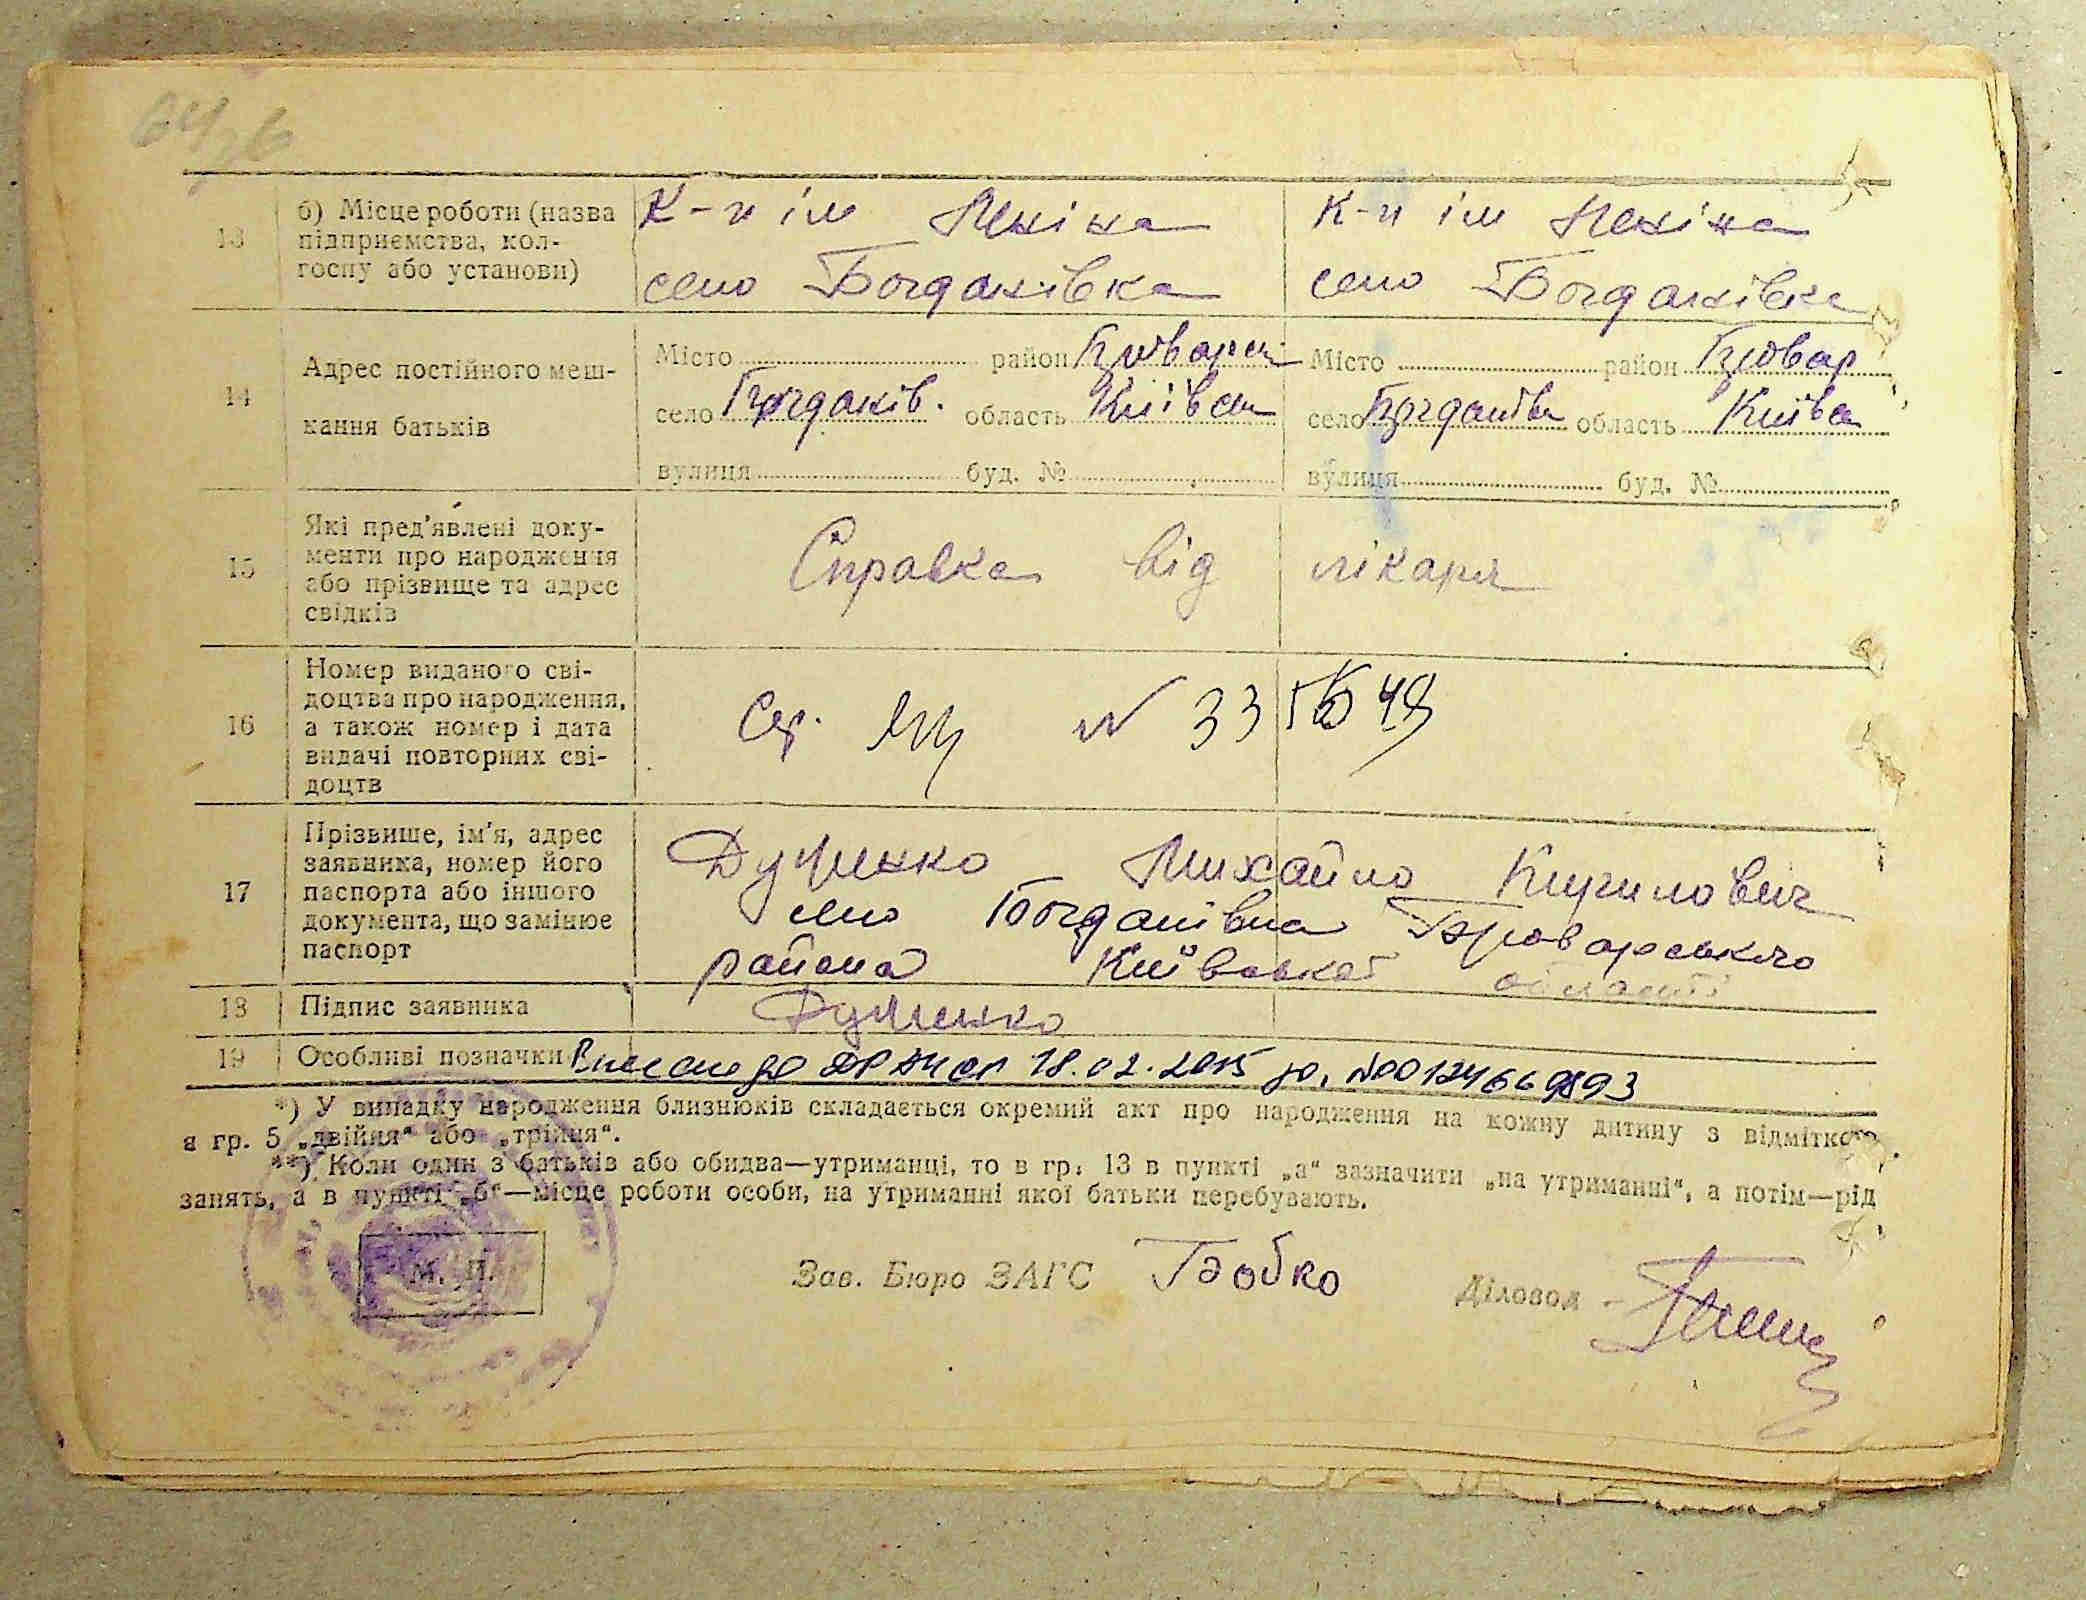 13
б) Місце роботи (назва
підприємства, кол-
госпу або установи)
К-п ім Леніна
село Богданівка
К-п ім Леніна
село Богданівка
14
Адрес постійного меш-
кання батьків
Місто район
село Богданів. область Київськ
вулиця буд. №
Місто район Бровар
село область
вулиця буд. №
15
Які пред'явлені доку-
менти про народження
або прізвище та адрес
свідків
Справка від лікаря
16
Номер виданого сві-
доцтва про народження,
а також номер і дата
видачі повторних сві-
доцтв
Сер. № 33
17
Прізвише, ім'я, адрес
заявника, номер його
паспорта або іншого
документа, що замінює
паспорт
Михайло Кирилович
село Богданівка Броварського
района Київської області
18
Підпис заявника
19
Особливі позначки
Внесено до 18.02.2015 р.
*) У випадку народження близнюків складається окремий акт про народження на кожну дитину з відміткою
в гр. 5 „двійня“ або „трійня“.
**) Коли один з батьків або обидва—утриманці, то в гр. 13 в пункті „а“ зазначити „на утриманні“, а потім—рід
занять, а в пункті „б“—місце роботи особи, на утриманні якої батьки перебувають.
М. П.
Зав. Бюро ЗАГС Бобко
Діловод